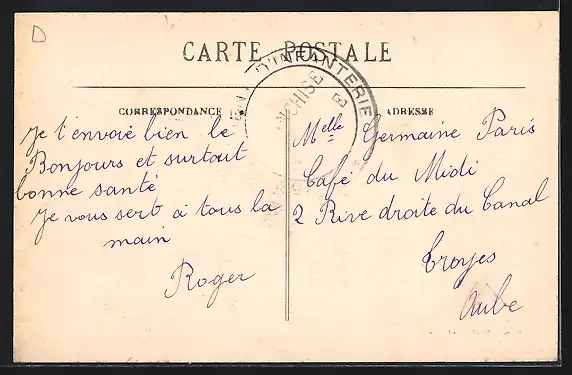 D
CARTE POSTALE
D'INFANTERIE
CORRESPONDANCE
ADRESSE
Je t'envoie bien le
Bonjours et surtout
bonne santé
Je vous sert a tous la
main
Roger
Melle Germaine Paris
Café du Midi
2 Rive droite du Canal
Troyes
Aube